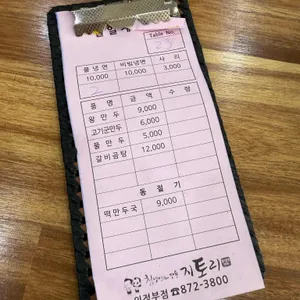 Table No.
23
물냉면 비빔냉면 사리
10,000 10,000 3,000
2
품명 금액 수량
왕만두 9,000
고기군만두 6,000
물만두 5,000
갈비곰탕 12,000
동절기
떡만두국 9,000
지토리
의정부점 ☎872-3800